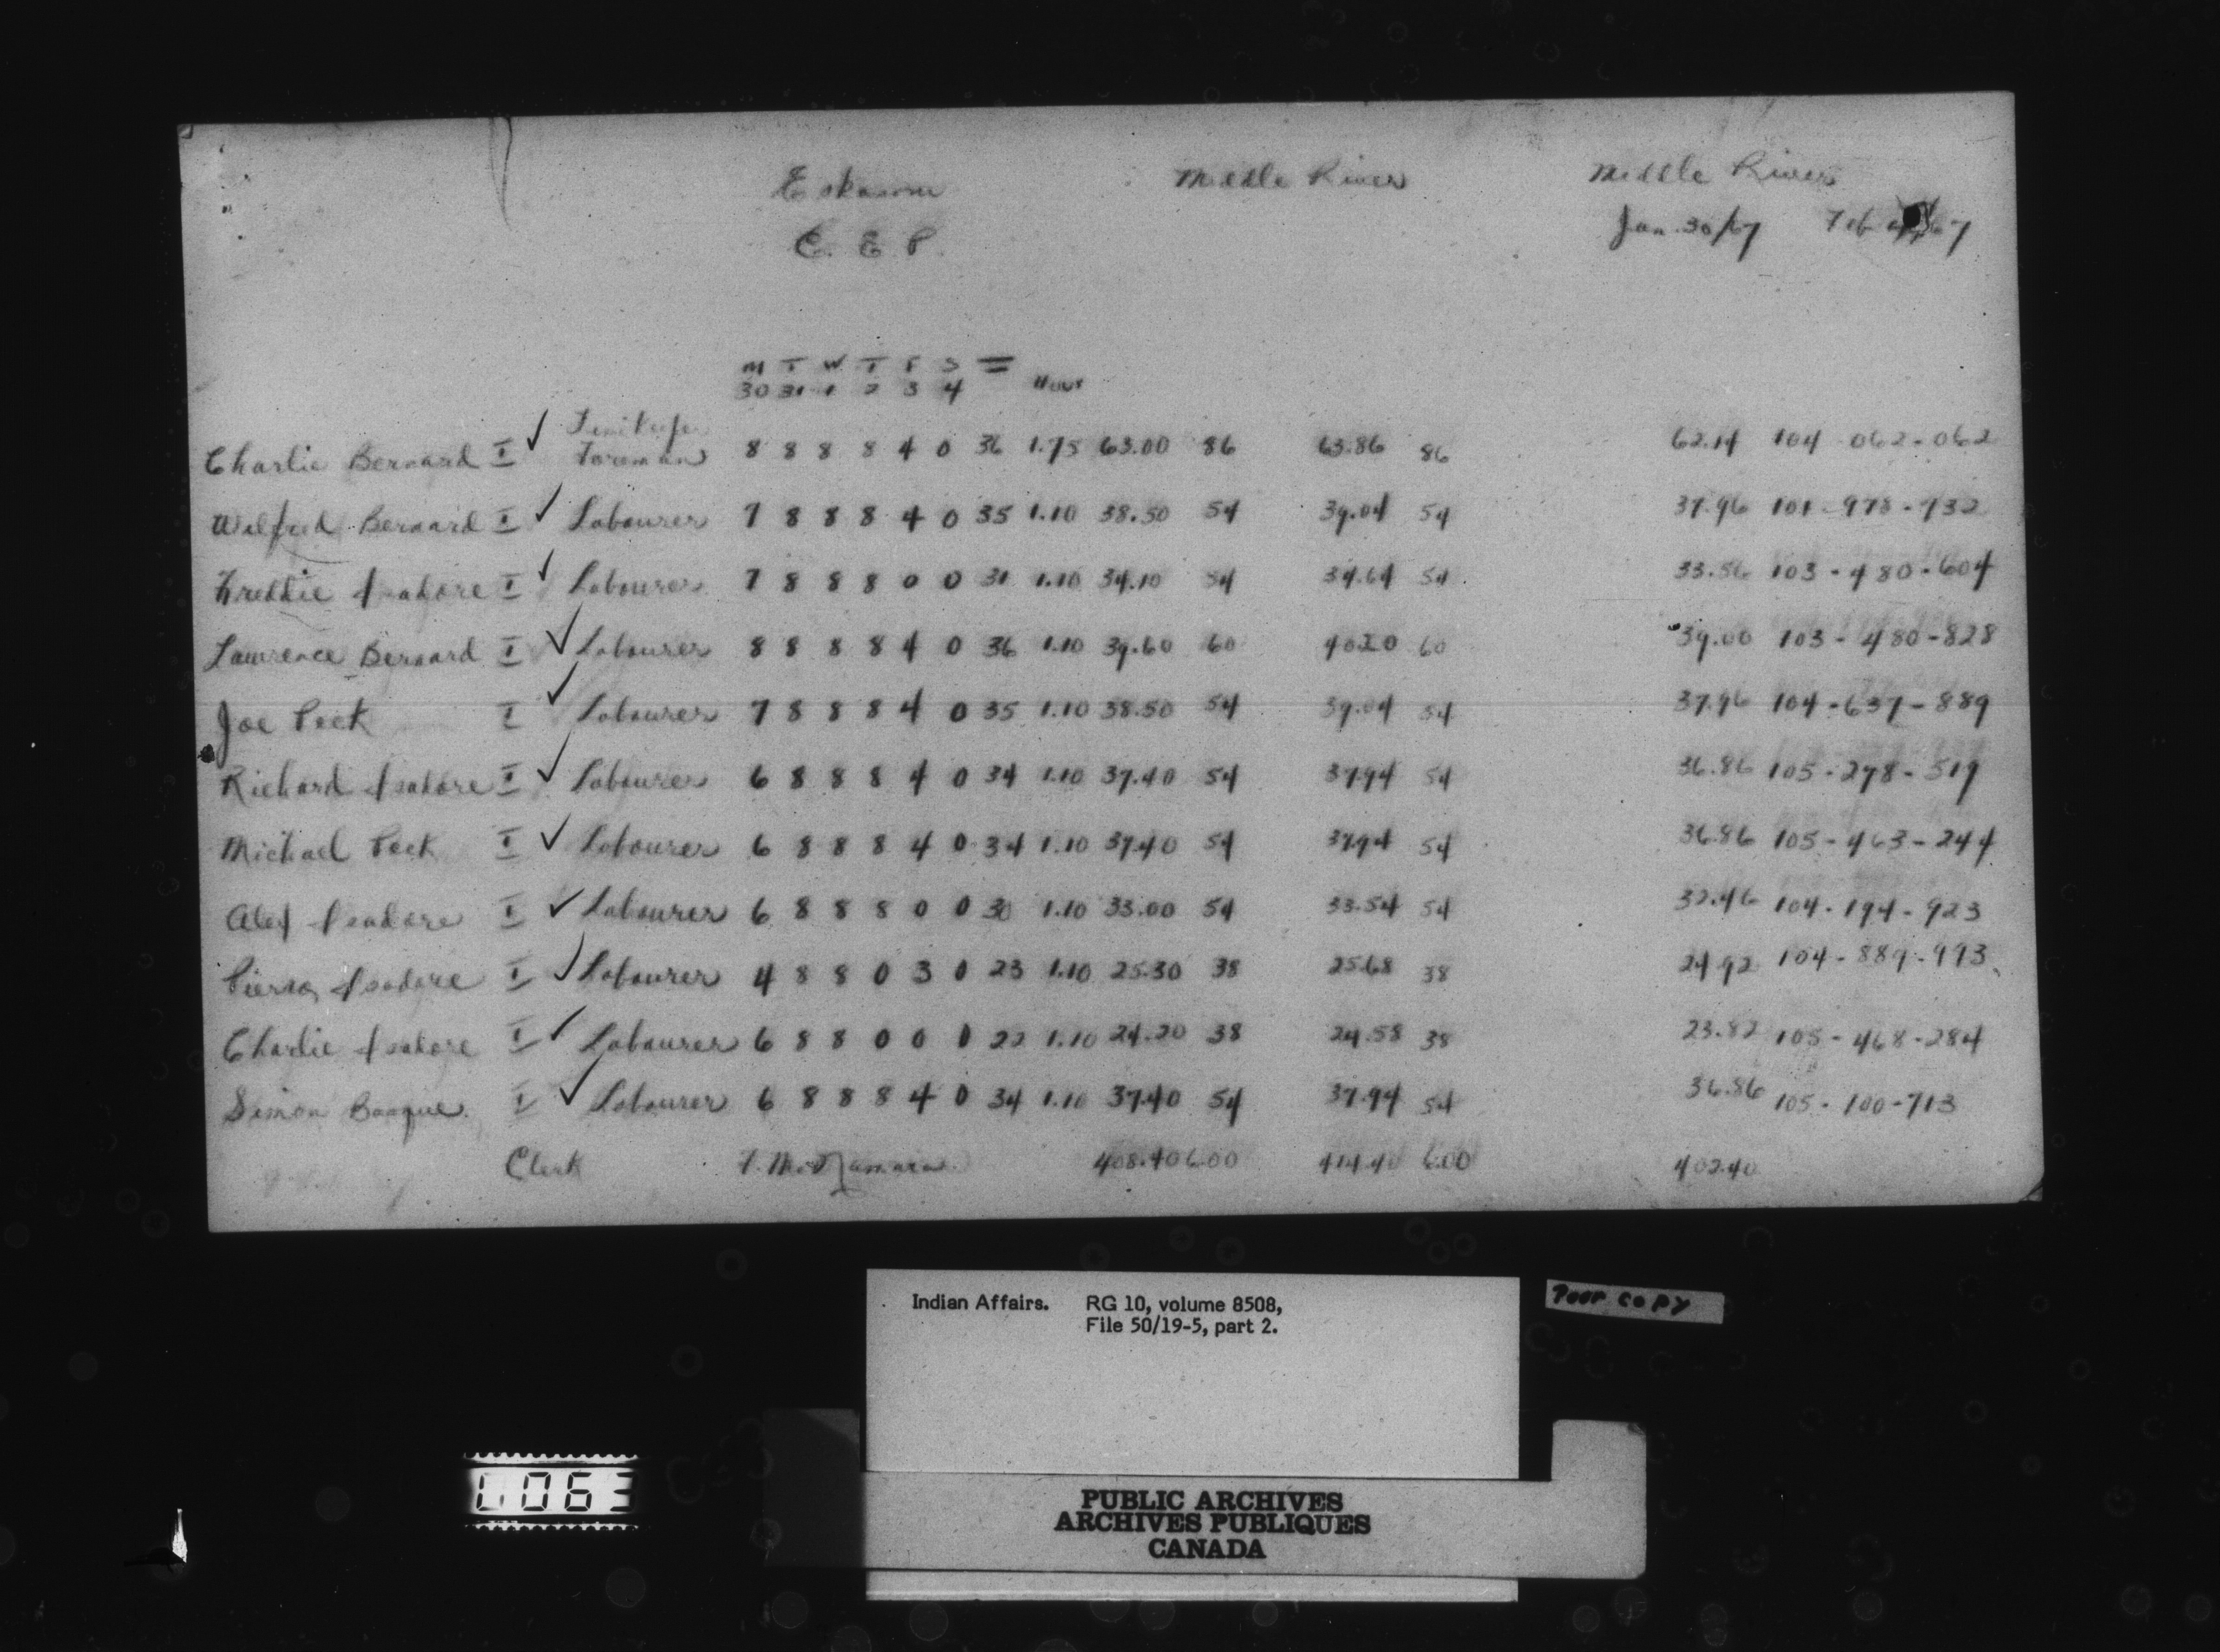 Eskasoni Middle River Middle River
C. E P. Jan. 30/67 Feb 4/67
M T W T F S =
30 31 1 2 3 4 Hour
Charlie Bernard I ✓ Timekeeper Foreman 8 8 8 8 4 0 36 1.75 63.00 86 63.86 86 62.14 104-062-062
Wilfred Bernard I ✓ Labourer 7 8 8 8 4 0 35 1.10 38.50 54 39.04 54 37.96 101-978-732
Freddie Isadore I ✓ Labourer 7 8 8 8 0 0 31 1.10 34.10 54 34.64 54 33.56 103-480-604
Lawrence Bernard I ✓ Labourer 8 8 8 8 4 0 36 1.10 39.60 60 40.20 60 39.00 103-480-828
Joe Peck I ✓ Labourer 7 8 8 8 4 0 35 1.10 38.50 54 39.04 54 37.96 104-637-889
Richard Isadore I ✓ Labourer 6 8 8 8 4 0 34 1.10 37.40 54 37.94 54 36.86 105-278-519
Michael Peck I ✓ Labourer 6 8 8 8 4 0 34 1.10 37.40 54 37.94 54 36.86 105-463-244
Alex Isadore I ✓ Labourer 6 8 8 8 0 0 30 1.10 33.00 54 33.54 54 32.46 104-194-923
Pierre Isadore I ✓ Labourer 4 8 8 0 3 0 23 1.10 25.30 38 25.68 38 24.92 104-889-993
Charlie Isadore I ✓ Labourer 6 8 8 0 0 0 22 1.10 24.20 38 24.58 38 23.82 105-468-284
Simon Basque I ✓ Labourer 6 8 8 8 4 0 34 1.10 37.40 54 37.94 54 36.86 105-100-713
Clerk 408.40 6.00 414.40 6.00 402.40
Indian Affairs. RG 10, volume 8508,
File 50/19-5, part 2.
Poor copy
0063
PUBLIC ARCHIVES
ARCHIVES PUBLIQUES
CANADA